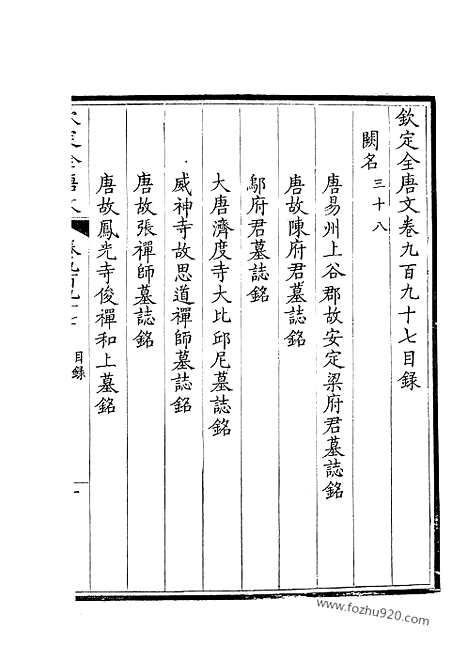 欽定全唐文卷九百九十七目錄
闕名三十八
唐易州上谷郡故安定梁府君墓誌銘
唐故陳府君墓誌銘
鄔府君墓誌銘
大唐濟度寺大比邱尼墓誌銘
威神寺故思道禪師墓誌銘
唐故張禪師墓誌銘
唐故鳳光寺俊禪和上墓銘
目錄
一
www.fozhu920.com